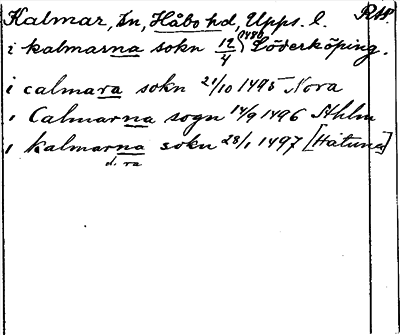 Kalmar, Sn, Håbo hd, Upps. l. RA.
i kalmarna sokn 12/4 1480 Söderköping.
i calmara sokn 21/10 1495 Nora
i Calmarna sogn 14/9 1496 Sthlm
i kalmarna sokn 28/1 1497 [Håtuna]
d. ra